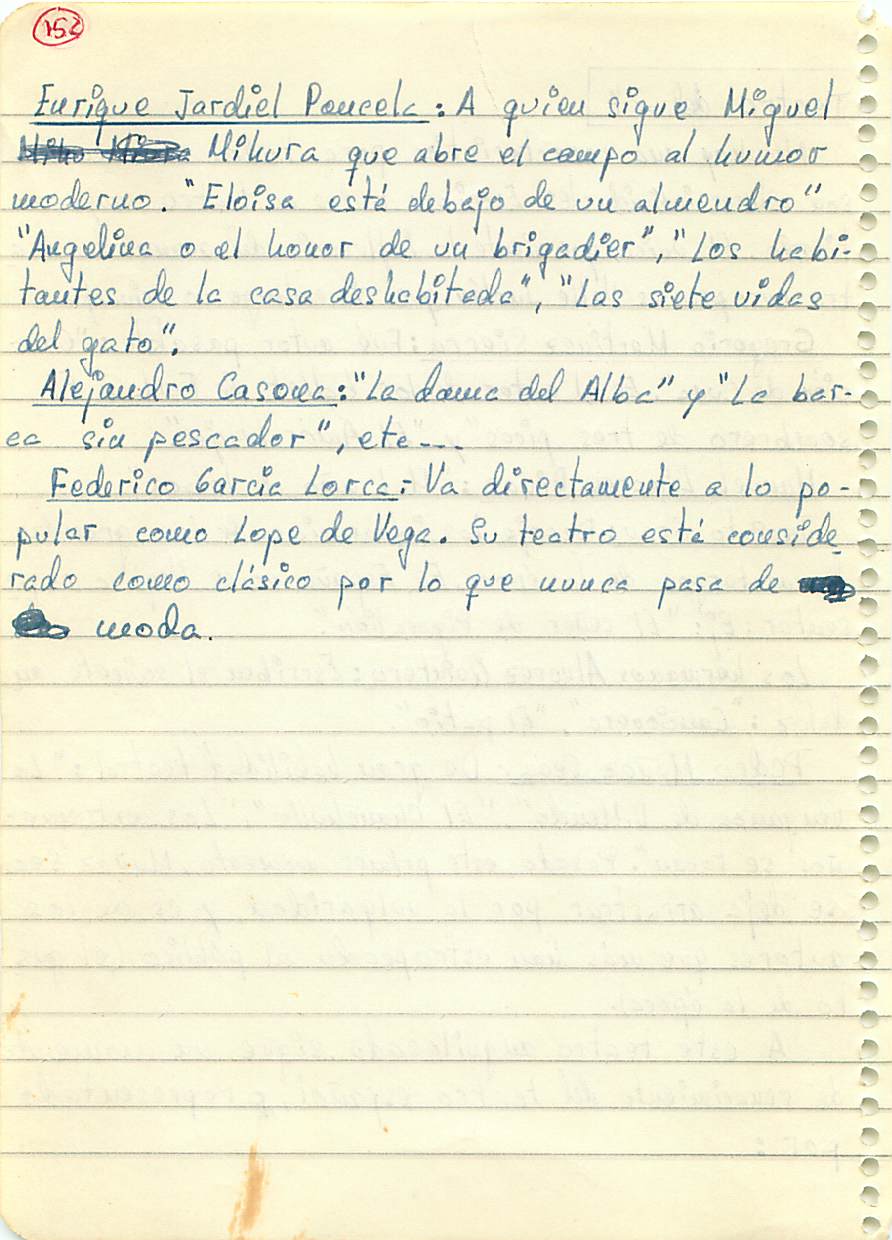 152
Enrique Jardiel Poncela: A quien sigue Miguel
Mihura que abre el campo al humor
moderno. "Eloísa está debajo de un almendro"
"Angelina o el honor de un brigadier", "Los habi-
tantes de la casa deshabitada", "Las siete vidas
del gato".
Alejandro Casona: "La dama del Alba" y "La bar-
ca sin pescador", etc...
Federico García Lorca: Va directamente a lo po-
pular como Lope de Vega. Su teatro está conside_
rado como clásico por lo que nunca pasa de
moda.